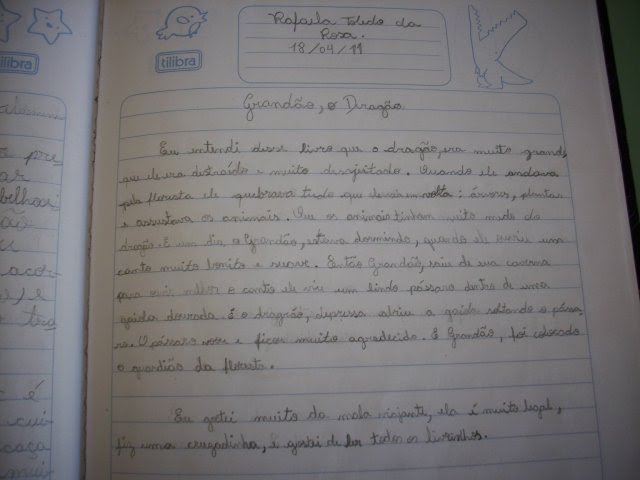 tilibra
tilibra
Rafaela Toledo da
Rosa.
18/04/11
Grandão, o Dragão
Eu entendi desse livro que o dragão, era muito grande,
que ele era distraído e muito desajeitado. Quando ele andava
pela floresta ele quebrava tudo que havia em volta: árvores, plantas
e assustava os animais. Que os animais tinham muito medo do
dragão. E um dia o Grandão, estava dormindo, quando ele ouviu um
canto muito bonito e suave. Então Grandão, saiu de sua caverna
para ouvir melhor o canto ele viu um lindo pássaro dentro de uma
gaiola dourada. E o dragrão, depressa abriu a gaiola soltando o pássa-
ro. O pássaro voou e ficou muito agradecido. E Grandão, foi colocado
o guardião da floresta.
Eu gostei muito da mala viajante, ela é muito legal,
fiz uma cruzadinha, e gostei de ler todos os livrinhos.